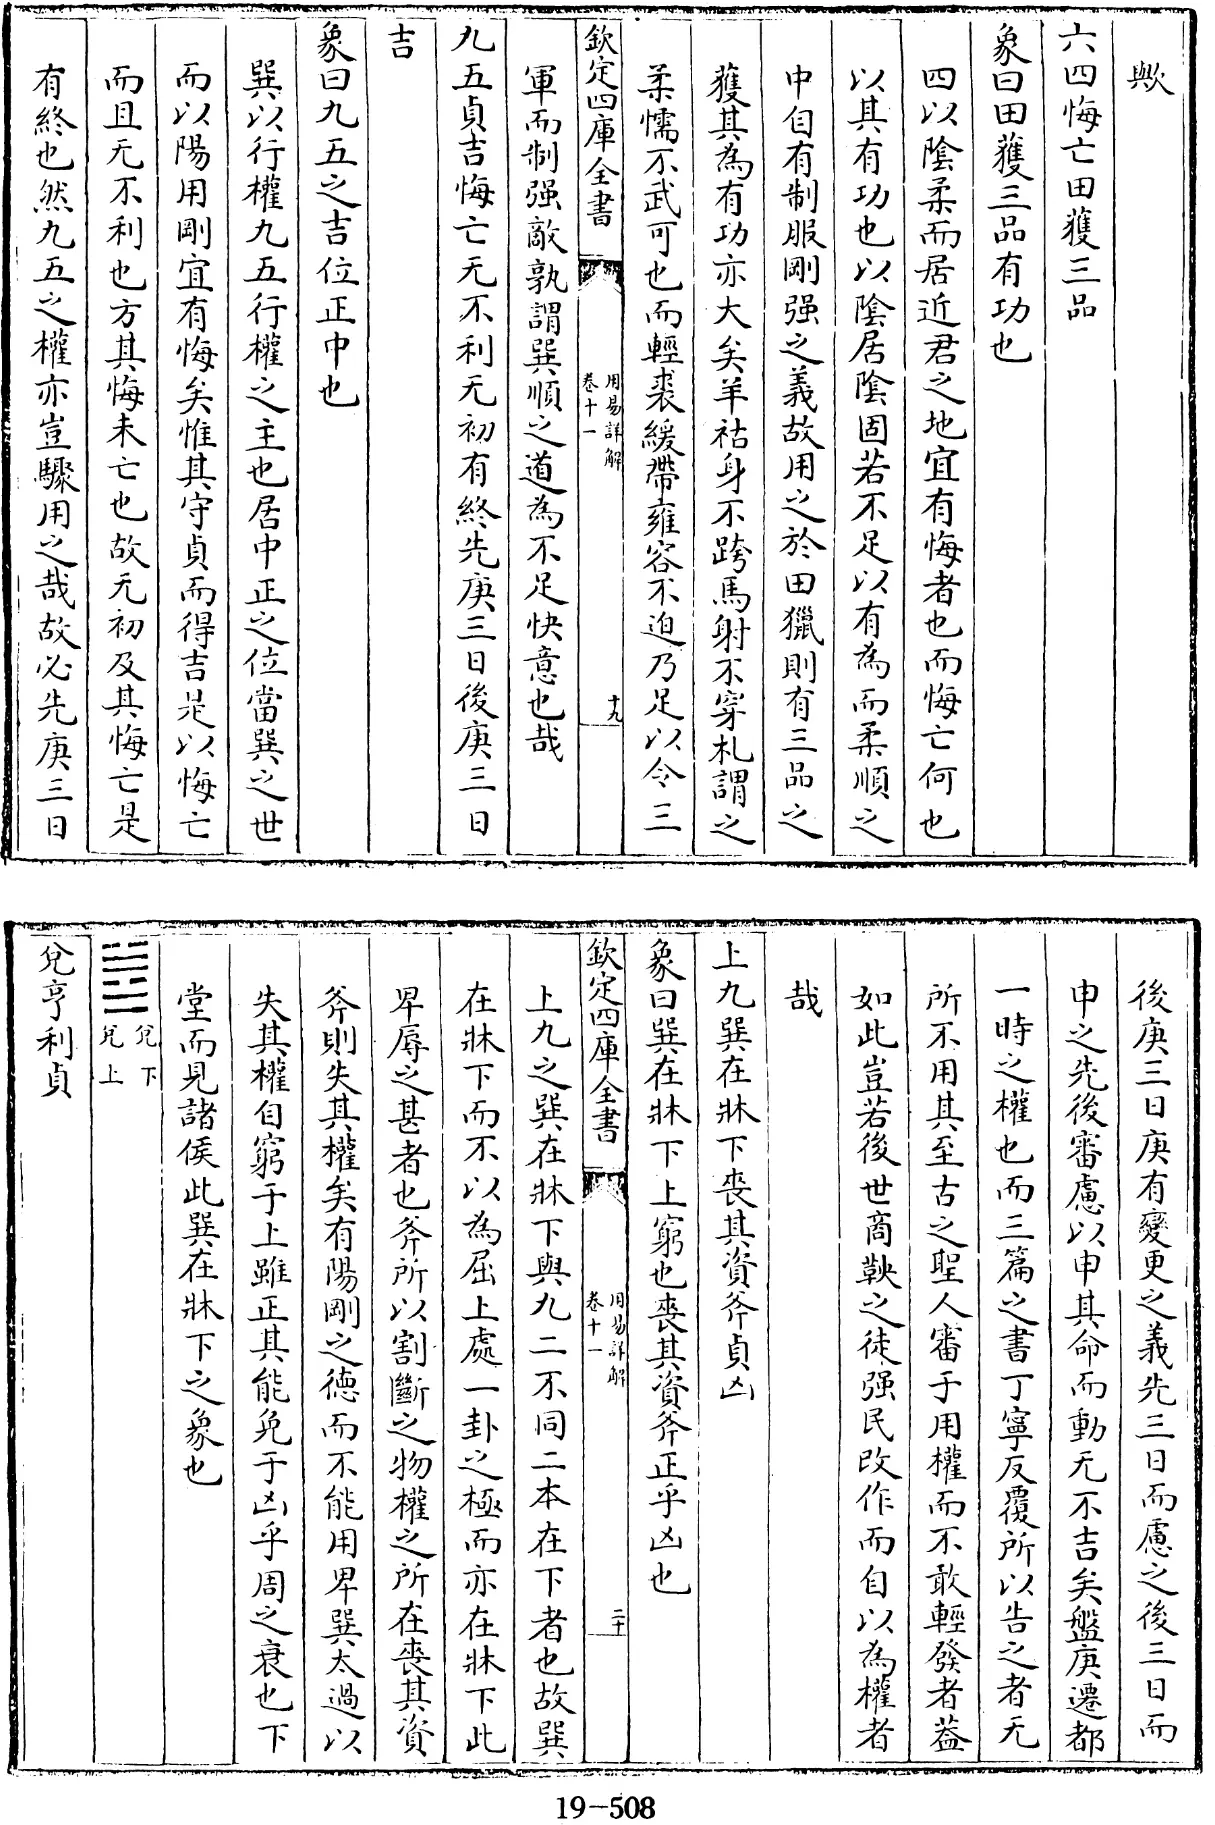 歟
六四悔亡田獲三品
象曰田獲三品有功也
四以陰柔而居近君之地宜有悔者也而悔亡何也
以其有功也以陰居陰固若不足以有為而柔順之
中自有制服剛强之義故用之於田獵則有三品之
獲其為有功亦大矣羊祜身不跨馬射不穿札謂之
柔懦不武可也而輕裘緩帶雍容不迫乃足以令三
欽定四庫全書
用易詳解
卷十一
十九
軍而制强敵孰謂巽順之道為不足快意也哉
九五貞吉悔亡无不利无初有終先庚三日後庚三日
吉
象曰九五之吉位正中也
巽以行權九五行權之主也居中正之位當巽之世
而以陽用剛宜有悔矣惟其守貞而得吉是以悔亡
而且无不利也方其悔未亡也故无初及其悔亡是
有終也然九五之權亦豈驟用之哉故必先庚三日
後庚三日庚有變更之義先三日而慮之後三日而
申之先後審慮以申其命而動无不吉矣盤庚遷都
一時之權也而三篇之書丁寧反覆所以告之者无
所不用其至古之聖人審于用權而不敢輕發者葢
如此豈若後世商鞅之徒强民改作而自以為權者
哉
上九巽在牀下喪其資斧貞凶
象曰巽在牀下上窮也喪其資斧正乎凶也
欽定四庫全書
用易詳解
卷十一
二十
上九之巽在牀下與九二不同二本在下者也故巽
在牀下而不以為屈上處一卦之極而亦在牀下此
卑辱之甚者也斧所以割斷之物權之所在喪其資
斧則失其權矣有陽剛之德而不能用卑巽太過以
失其權自窮于上雖正其能免于凶乎周之衰也下
堂而見諸侯此巽在牀下之象也
兌下
兌上
兌亨利貞
19-508